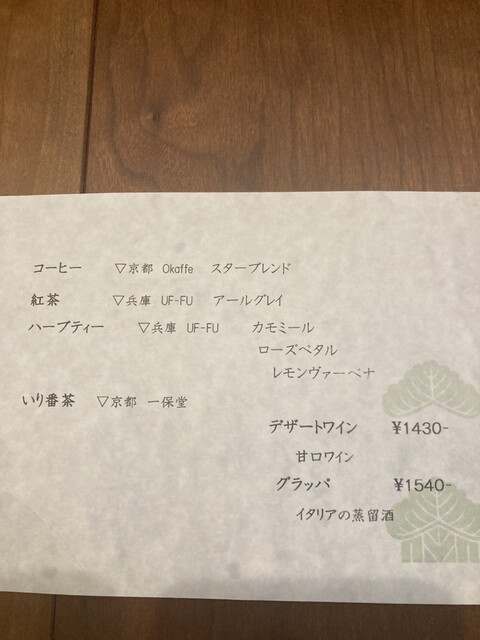 コーヒー ▽京都 Okaffe スターブレンド
紅茶 ▽兵庫 UF-FU アールグレイ
ハーブティー ▽兵庫 UF-FU カモミール
ローズペタル
レモンヴァーベナ
いり番茶 ▽京都 一保堂
デザートワイン ¥1430-
甘口ワイン
グラッパ ¥1540-
イタリアの蒸留酒